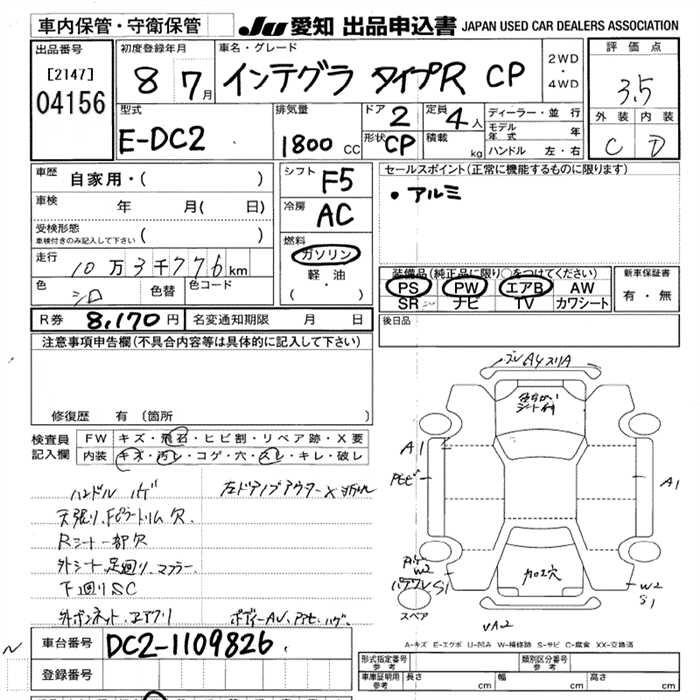 車内保管・守衛保管
JU 愛知 出品申込書 JAPAN USED CAR DEALERS ASSOCIATION
出品番号
[2147]
04156
初度登録年月
8 7月
車名・グレード
インテグラ タイプR CP
2WD
・
4WD
評価点
3.5
外装 内装
C D
型式
E-DC2
排気量
1800 CC
ドア 2
形状 CP
定員 4人
積載 kg
ディーラー・並行
モデル年式 年
ハンドル 左・右
車歴 自家用・( )
車検 年 月( 日)
受検形態
車検付きのみ記入して下さい ( )
走行 10万3千776km
色 シロ 色替 色コード
シフト F5
冷房 AC
燃料
ガソリン
軽油
( ・ )
セールスポイント(正常に機能するものに限ります)
・アルミ
装備品(純正品に限り○をつけてください)
PS PW エアB AW
SR ナビ TV カワシート
新車保証書
有・無
R券 8,170円 名変通知期限 月 日
後日品
注意事項申告欄(不具合内容等は具体的に記入して下さい)
修復歴 有(箇所 )
検査員記入欄
FW キズ・飛石・ヒビ割・リペア跡・X要
内装 キズ・汚レ・コゲ・穴・スレ・キレ・破レ
ハンドル ハゲ
天張り、Fピラートリム欠
Rシート一部欠
外シート、足廻り、マフラー
下廻りSC
外ボンネット、エアクリ
車台番号 DC2-1109826
登録番号
A1
A1
W2
S1
W2
S1
加工穴
スペア
A-キズ E-エクボ U-凹み W-補修跡 S-サビ C-腐食 XX-交換済
形式指定番号
参考
類別区分番号
参考
車庫証明用
参考
長さ cm 幅 cm 高さ cm